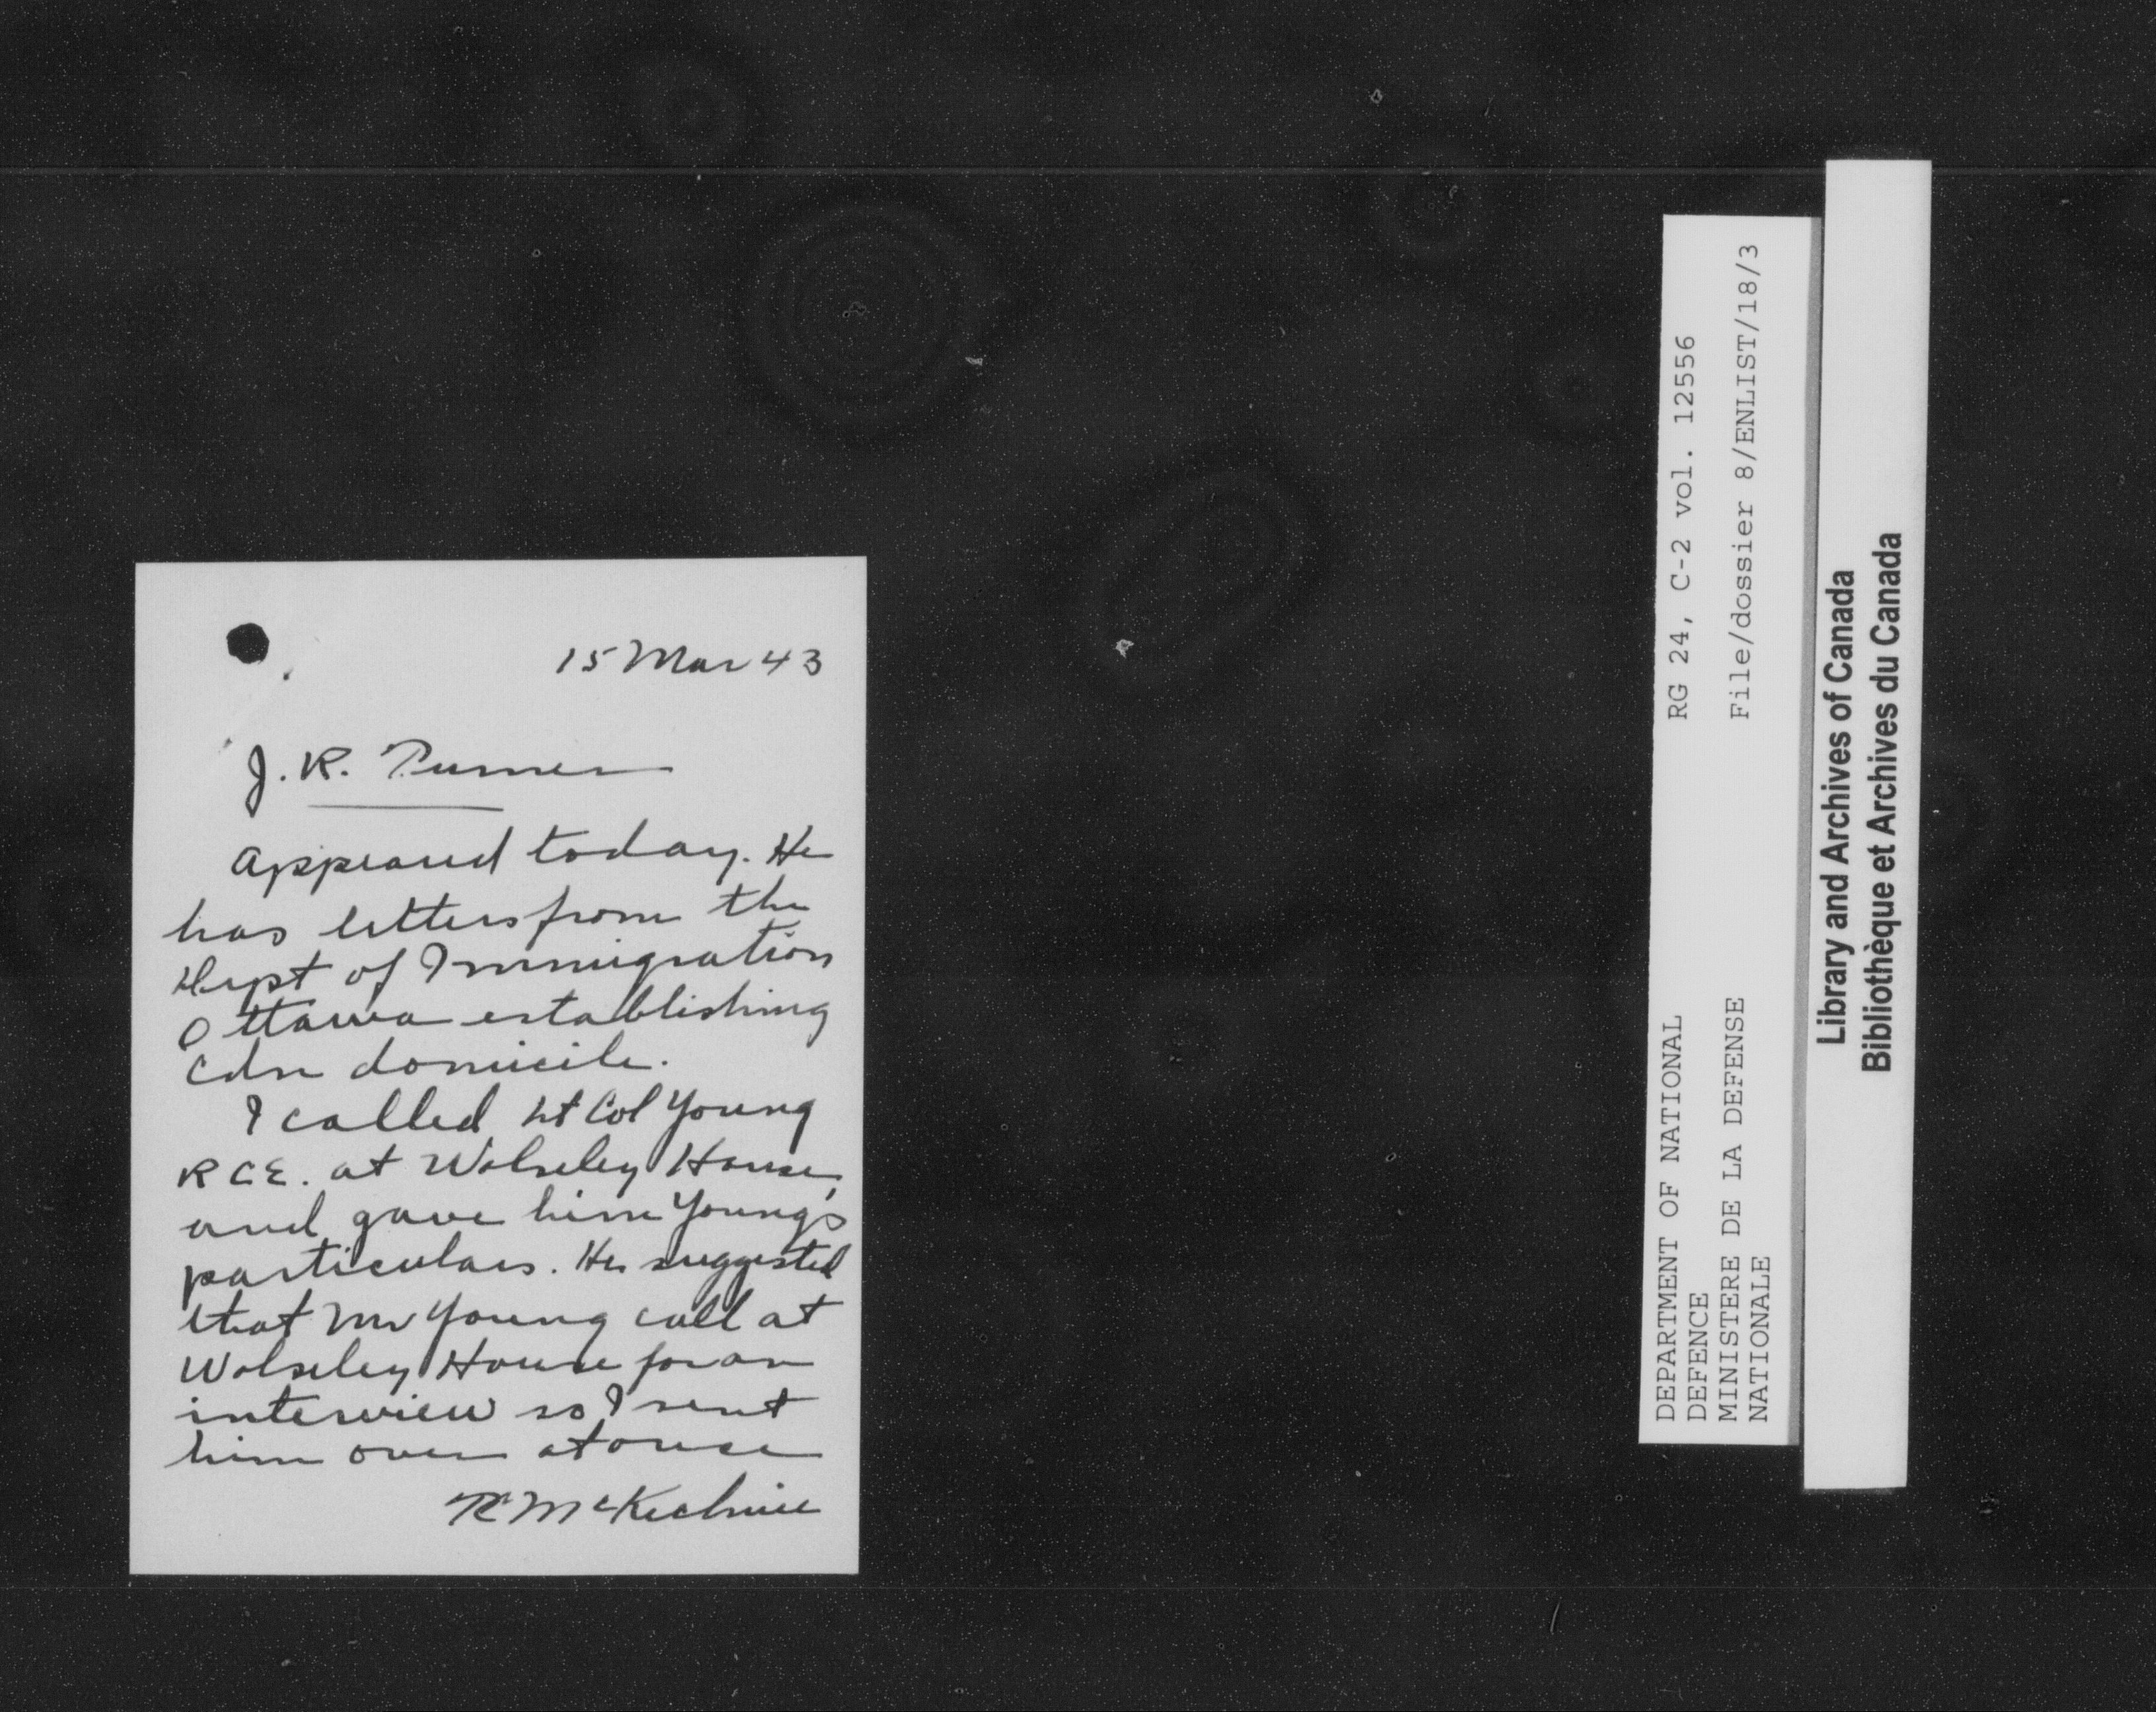 15 Mar 43
J. R. Turner
Appeared today. He
has letters from the
Dept of Immigration
Ottawa establishing
Cdn domicile.
I called Lt Col Young
RCE. at Wolseley House,
and gave him Young's
particulars. He suggested
that Mr Young call at
Wolseley House for an
interview so I sent
him over at once
R McKechnie
RG 24, C-2 vol. 12556
File/dossier 8/ENLIST/18/3
DEPARTMENT OF NATIONAL
DEFENCE
MINISTERE DE LA DEFENSE
NATIONALE
Library and Archives of Canada
Bibliothèque et Archives du Canada